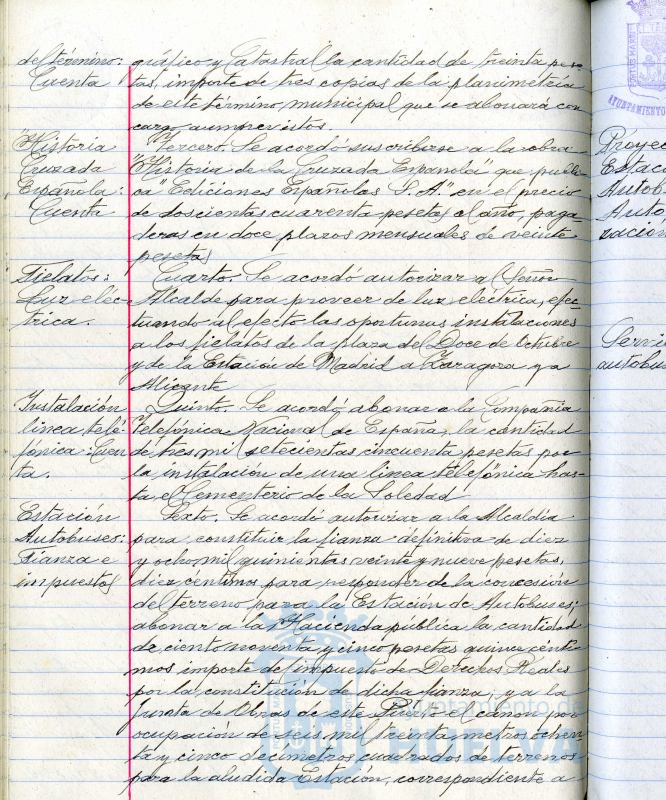 del término:
Cuenta
gráfico y Catastral la cantidad de treinta pese
tas, importe de tres copias de la planimetría
de este término municipal que se abonará con
cargo a imprevistos.
"Historia
Cruzada
Española:
Cuenta
Tercero. Se acordó suscribirse a la obra
"Historia de la Cruzada Española" que publi
ca "Ediciones Españolas S.A" en el precio
de doscientas cuarenta pesetas al año, paga
deras en doce plazos mensuales de veinte
pesetas
Fielatos:
Luz eléc
trica.
Cuarto. Se acordó autorizar al Señor
Alcalde para proveer de luz eléctrica, efec
tuando al efecto las oportunas instalaciones
a los fielatos de la plaza del Doce de Octubre
y de la Estación de Madrid a Zaragoza y a
Alicante
Instalación
linea telé
fónica: Cuen
ta.
Quinto. Se acordó abonar a la Compañia
Telefónica Nacional de España, la cantidad
de tres mil setecientas cincuenta pesetas por
la instalación de una linea telefónica has-
ta el Cementerio de la Soledad
Estación
Autobuses:
Fianza e
impuestos
Sexto. Se acordó autorizar a la Alcaldía
para constituir la fianza definitiva de diez
y ocho mil quinientas veinte y nueve pesetas,
diez céntimos para responder de la concesión
del terreno para la Estación de Autobuses;
abonar a la Hacienda pública la cantidad
de ciento noventa y cinco pesetas quince cénti
mos importe del impuesto de Derechos Reales
por la constitución de dicha fianza; y a la
Junta de Obras de este Puerto el canon por
ocupación de seis mil treinta metros ochen
ta y cinco decímetros cuadrados de terrenos
para la aludida Estación, correspondiente a
Proyec
Estaci
Autob
Auto
zacion
Servi
autobus
AYUNTAMIENTO
Ayuntamiento de
HUELVA